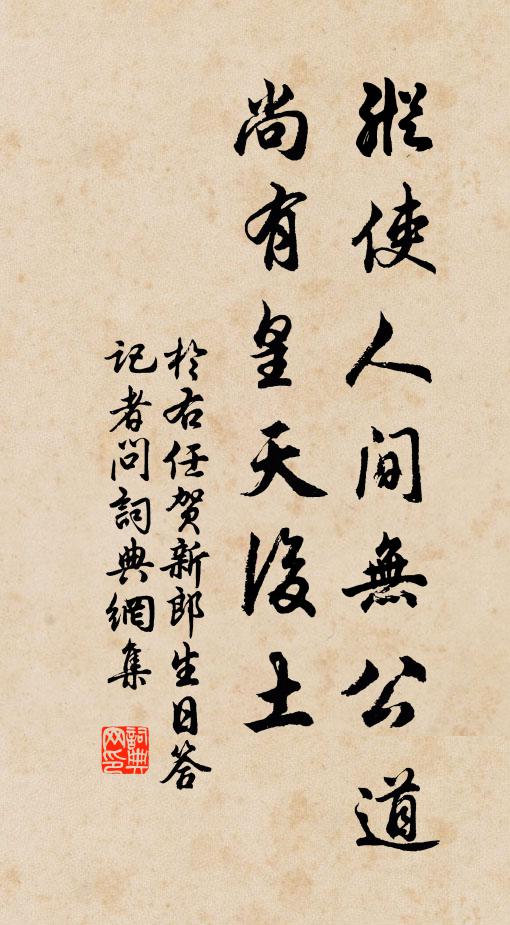 縱使人間無公道
尚有皇天後土
於右任賀新郎生日答
記者問詞典網集
詞典
网印